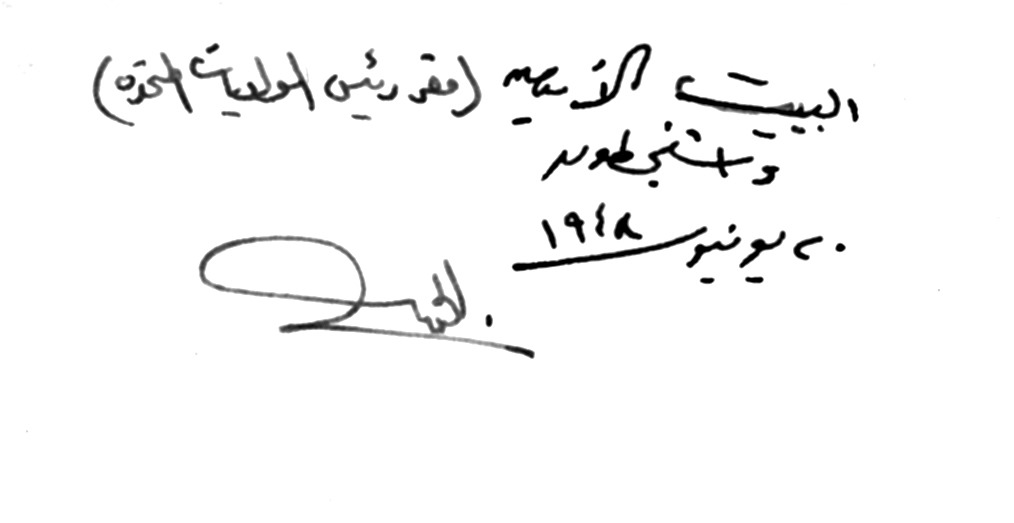 البيت الأبيض (مقر رئيس الولايات المتحدة)
واشنجطون
٢٠ يونيو ١٩٤٨